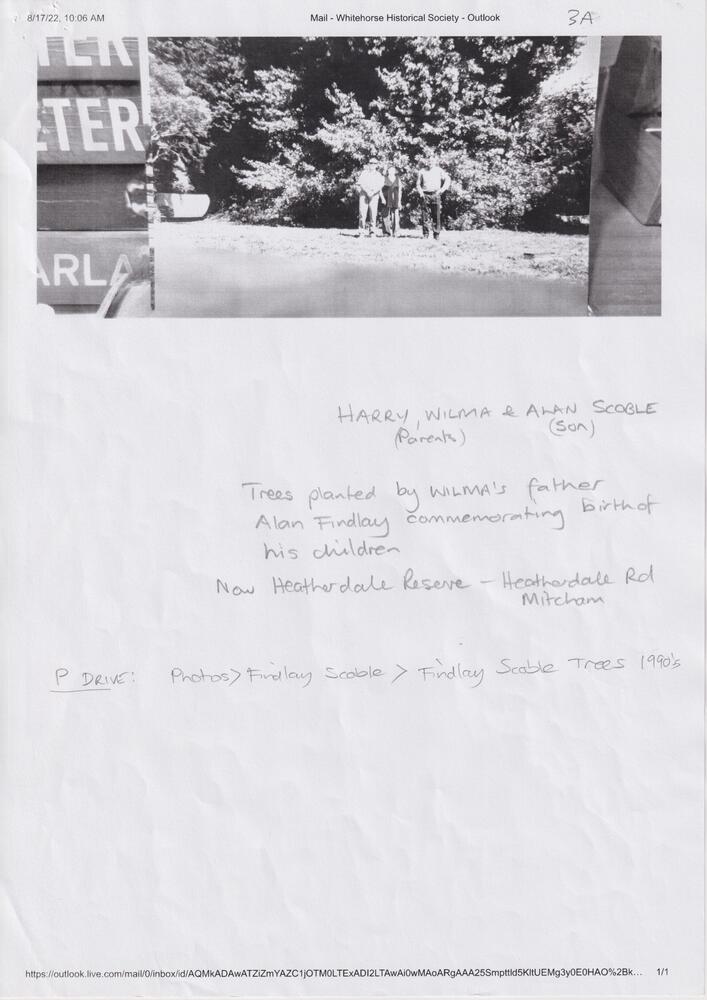 8/17/22, 10:06 AM Mail - Whitehorse Historical Society - Outlook 3A
TER
ETER
ARLA
HARRY, WILMA & ALAN SCOBLE
(Parents) (Son)
Trees planted by WILMA's father
Alan Findlay commemorating birth of
his children
Now Heatherdale Reserve - Heatherdale Rd
Mitcham
P DRIVE: Photos > Findlay Scoble > Findlay Scoble Trees 1990's
https://outlook.live.com/mail/0/inbox/id/AQMkADAwATZiZmYAZC1jOTM0LTExADI2LTAwAi0wMAoARgAAA25SmpttId5KItUEMg3y0E0HAO%2Bk... 1/1